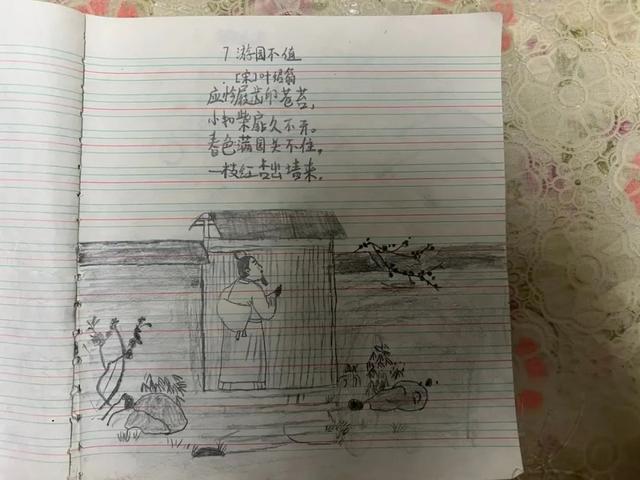 7 游园不值
[宋]叶绍翁
应怜屐齿印苍苔,
小扣柴扉久不开。
春色满园关不住,
一枝红杏出墙来.